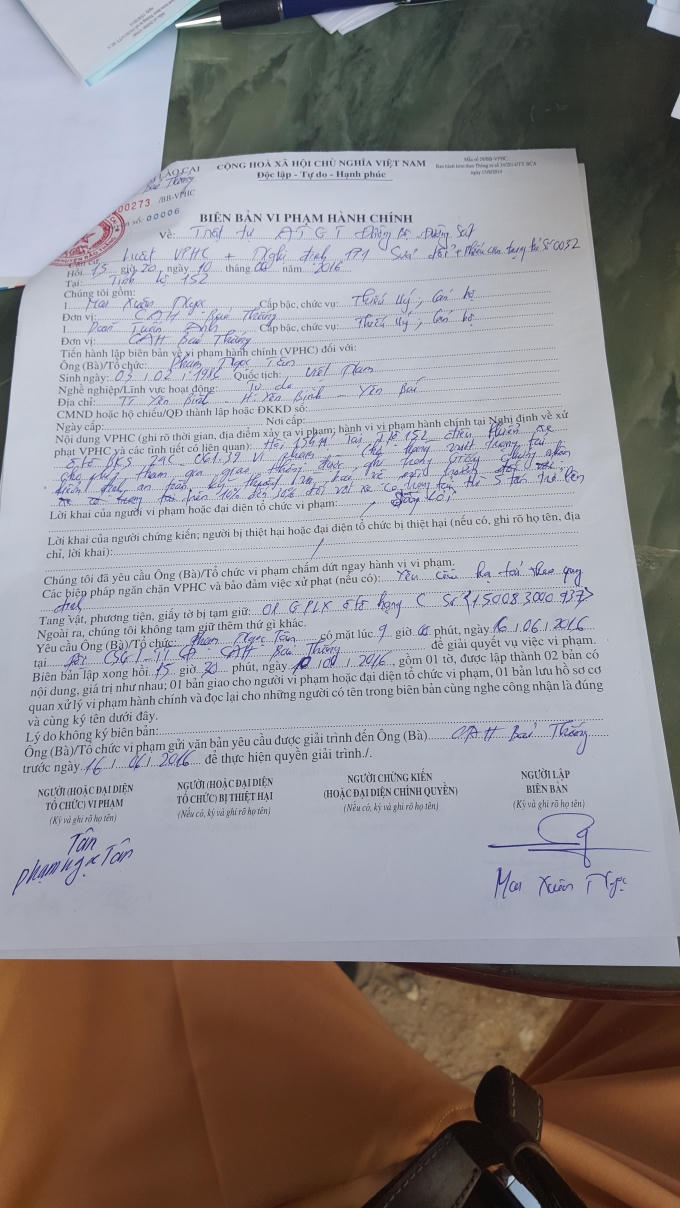 LÀO CAI
CỘNG HOÀ XÃ HỘI CHỦ NGHĨA VIỆT NAM
Độc lập - Tự do - Hạnh phúc
00273 /BB-VPHC
00006
BIÊN BẢN VI PHẠM HÀNH CHÍNH
Về: Trật tự ATGT Đường Bộ, Đường Sắt
Luật VPHC + Nghị định 171 Sửa đổi +
Hồi. 15 giờ 20, ngày 10 tháng 06 năm 2016
Tại: Tỉnh lộ 152
Chúng tôi gồm:
1 Mai Xuân Ngọc Cấp bậc, chức vụ: Thiếu úy, Cán bộ
Đơn vị: CAH Bảo Thắng
1. Doãn Tuấn Anh Cấp bậc, chức vụ: Thiếu úy, Cán bộ
Đơn vị: CAH Bảo Thắng
Tiến hành lập biên bản về vi phạm hành chính (VPHC) đối với:
Ông (Bà)/Tổ chức: Phạm Ngọc Tân
Sinh ngày: 03 / 02 / 1986 Quốc tịch: Việt Nam
Nghề nghiệp/Lĩnh vực hoạt động: Tự do
Địa chỉ: TT Yên Bình - H. Yên Bình - Yên Bái
CMND hoặc hộ chiếu/QĐ thành lập hoặc ĐKKD số:
Ngày cấp: Nơi cấp:
Nội dung VPHC (ghi rõ thời gian, địa điểm xảy ra vi phạm; hành vi vi phạm hành chính tại Nghị định về xử
phạt VPHC và các tình tiết có liên quan): Tại 152 điều khiển xe
ô tô BKS 29C 061.39 Vi phạm - Chở hàng vượt trọng tải
cho phép tham gia giao thông được ghi trong giấy chứng nhận
kiểm định an toàn kỹ thuật và bảo vệ môi trường
trên 10% đến 30% đối với xe có trọng tải từ 5 tấn trở lên
Lời khai của người vi phạm hoặc đại diện tổ chức vi phạm:
Lời khai của người chứng kiến; người bị thiệt hại hoặc đại diện tổ chức bị thiệt hại (nếu có, ghi rõ họ tên, địa
chỉ, lời khai): /
Chúng tôi đã yêu cầu Ông (Bà)/Tổ chức vi phạm chấm dứt ngay hành vi vi phạm.
Các biện pháp ngăn chặn VPHC và bảo đảm việc xử phạt (nếu có): Yêu cầu hạ tải theo quy
định
Tang vật, phương tiện, giấy tờ bị tạm giữ: 01 GPLX ô tô hạng C Số (150083000937)
Ngoài ra, chúng tôi không tạm giữ thêm thứ gì khác.
Yêu cầu Ông (Bà)/Tổ chức: Phạm Ngọc Tân có mặt lúc 9 giờ 00 phút, ngày 16 / 06 / 2016
tại CAH Bảo Thắng để giải quyết vụ việc vi phạm.
Biên bản lập xong hồi 15 giờ 30 phút, ngày 10 / 2016, gồm 01 tờ, được lập thành 02 bản có
nội dung, giá trị như nhau; 01 bản giao cho người vi phạm hoặc đại diện tổ chức vi phạm, 01 bản lưu hồ sơ cơ
quan xử lý vi phạm hành chính và đọc lại cho những người có tên trong biên bản cùng nghe công nhận là đúng
và cùng ký tên dưới đây.
Lý do không ký biên bản:
Ông (Bà)/Tổ chức vi phạm gửi văn bản yêu cầu được giải trình đến Ông (Bà) CAH Bảo Thắng
trước ngày 16 / 06 / 2016 để thực hiện quyền giải trình./.
NGƯỜI (HOẶC ĐẠI DIỆN NGƯỜI (HOẶC ĐẠI DIỆN NGƯỜI CHỨNG KIẾN NGƯỜI LẬP
TỔ CHỨC) VI PHẠM TỔ CHỨC) BỊ THIỆT HẠI (HOẶC ĐẠI DIỆN CHÍNH QUYỀN) BIÊN BẢN
(Ký và ghi rõ họ tên) (Nếu có, ký và ghi rõ họ tên) (Nếu có, ký và ghi rõ họ tên) (Ký và ghi rõ họ tên)
Tân
Phạm Ngọc Tân
Mai Xuân Ngọc